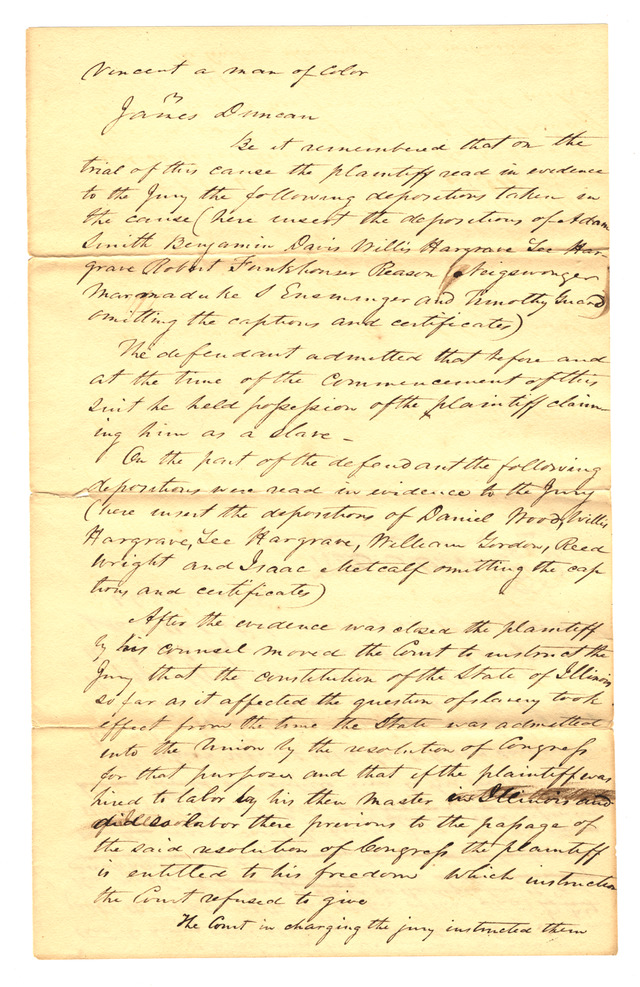 Vincent a man of Color
vs
James Duncan
Be it remembered that on the
trial of this cause the plaintiff read in evidence
to the Jury the following depositions taken in
the cause (here insert the depositions of Adam
Smith Benjamin Davis Willis Hargrave Lee Har-
grave Robert Funkhouser Reason
Marmaduke S Ensminger and Timothy Guard
omitting the captions and certificates)
The defendant admitted that before and
at the time of the Commencement of this
suit he held possession of the plaintiff claim-
ing him as a slave -
On the part of the defendant the following
depositions were read in evidence to the Jury
(here insert the depositions of Daniel Wood, Willis
Hargrave, Lee Hargrave, William Gordon, Reed
Wright and Isaac Metcalf omitting the cap
tions and certificates)
After the evidence was closed the plaintiff
by his counsel moved the Court to instruct the
Jury that the constitution of the State of Illinois
so far as it affected the question of slavery took
effect from the time the State was admitted
into the Union by the resolution of Congress
for that purpose and that if the plaintiff was
hired to labor by his then master in Illinois and
did so labor there previous to the passage of
the said resolution of Congress the plaintiff
is entitled to his freedom which instruction
the Court refused to give
The Court in charging the jury instructed them